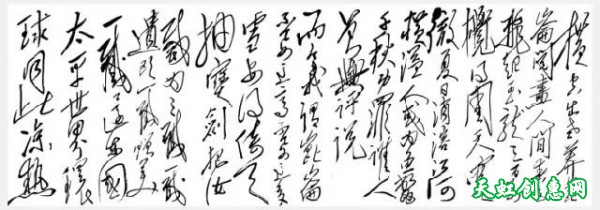 横空出世莽
崙阅尽人间春
飞起玉龙三百
搅得周天寒
彻夏日消溶江河
横溢人或为鱼鳖
千秋功罪谁人
曾与评说
而今我谓崑崙
不要这高不要这多
雪安得倚天
抽宝剑把汝
裁为三截一截
遗欧一截赠美
一截还东国
太平世界环
球同此凉热
天虹创惠网